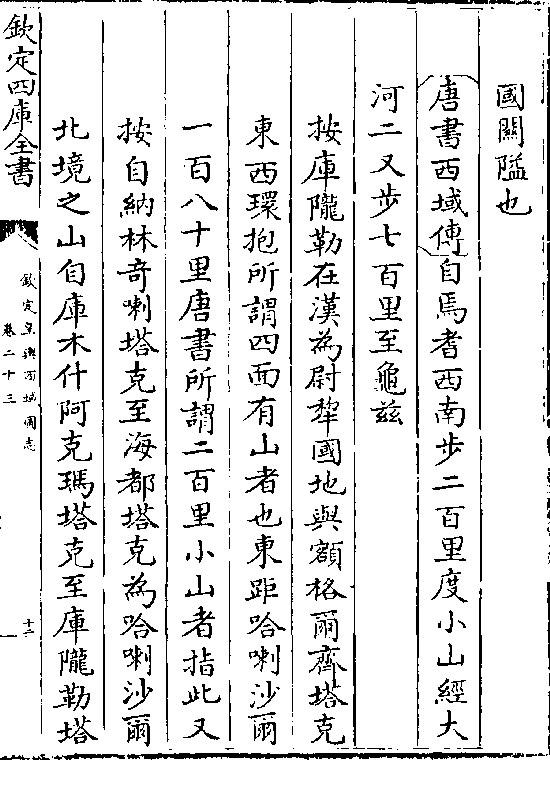 國關隘也
唐書西域傳自焉耆西南步二百里度小山經大
河二又步七百里至龜兹
按庫隴勒在漢為尉犂國地與額格爾齊塔克
東西環抱所謂四面有山者也東距哈喇沙爾
一百八十里唐書所謂二百里小山者指此又
按自納林奇喇塔克至海都塔克為哈喇沙爾
北境之山自庫木什阿克瑪塔克至庫隴勒塔
欽定四庫全書
欽定皇輿西域圖志
卷二十三
十二